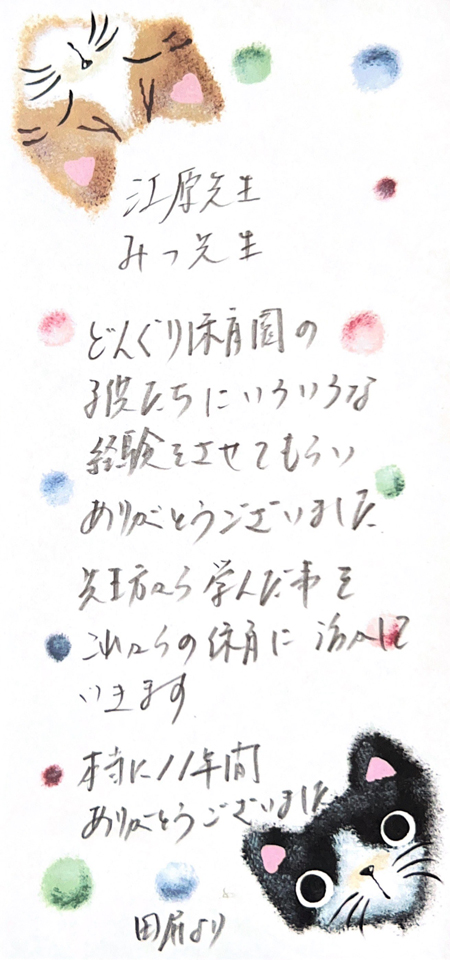 江原先生
みつ先生
どんぐり保育園の
子供たちにいろいろな
経験をさせてもらい
ありがとうございました
先生方から学んだ事を
これからの保育に活かして
いきます
本当に11年間
ありがとうございました
田原より